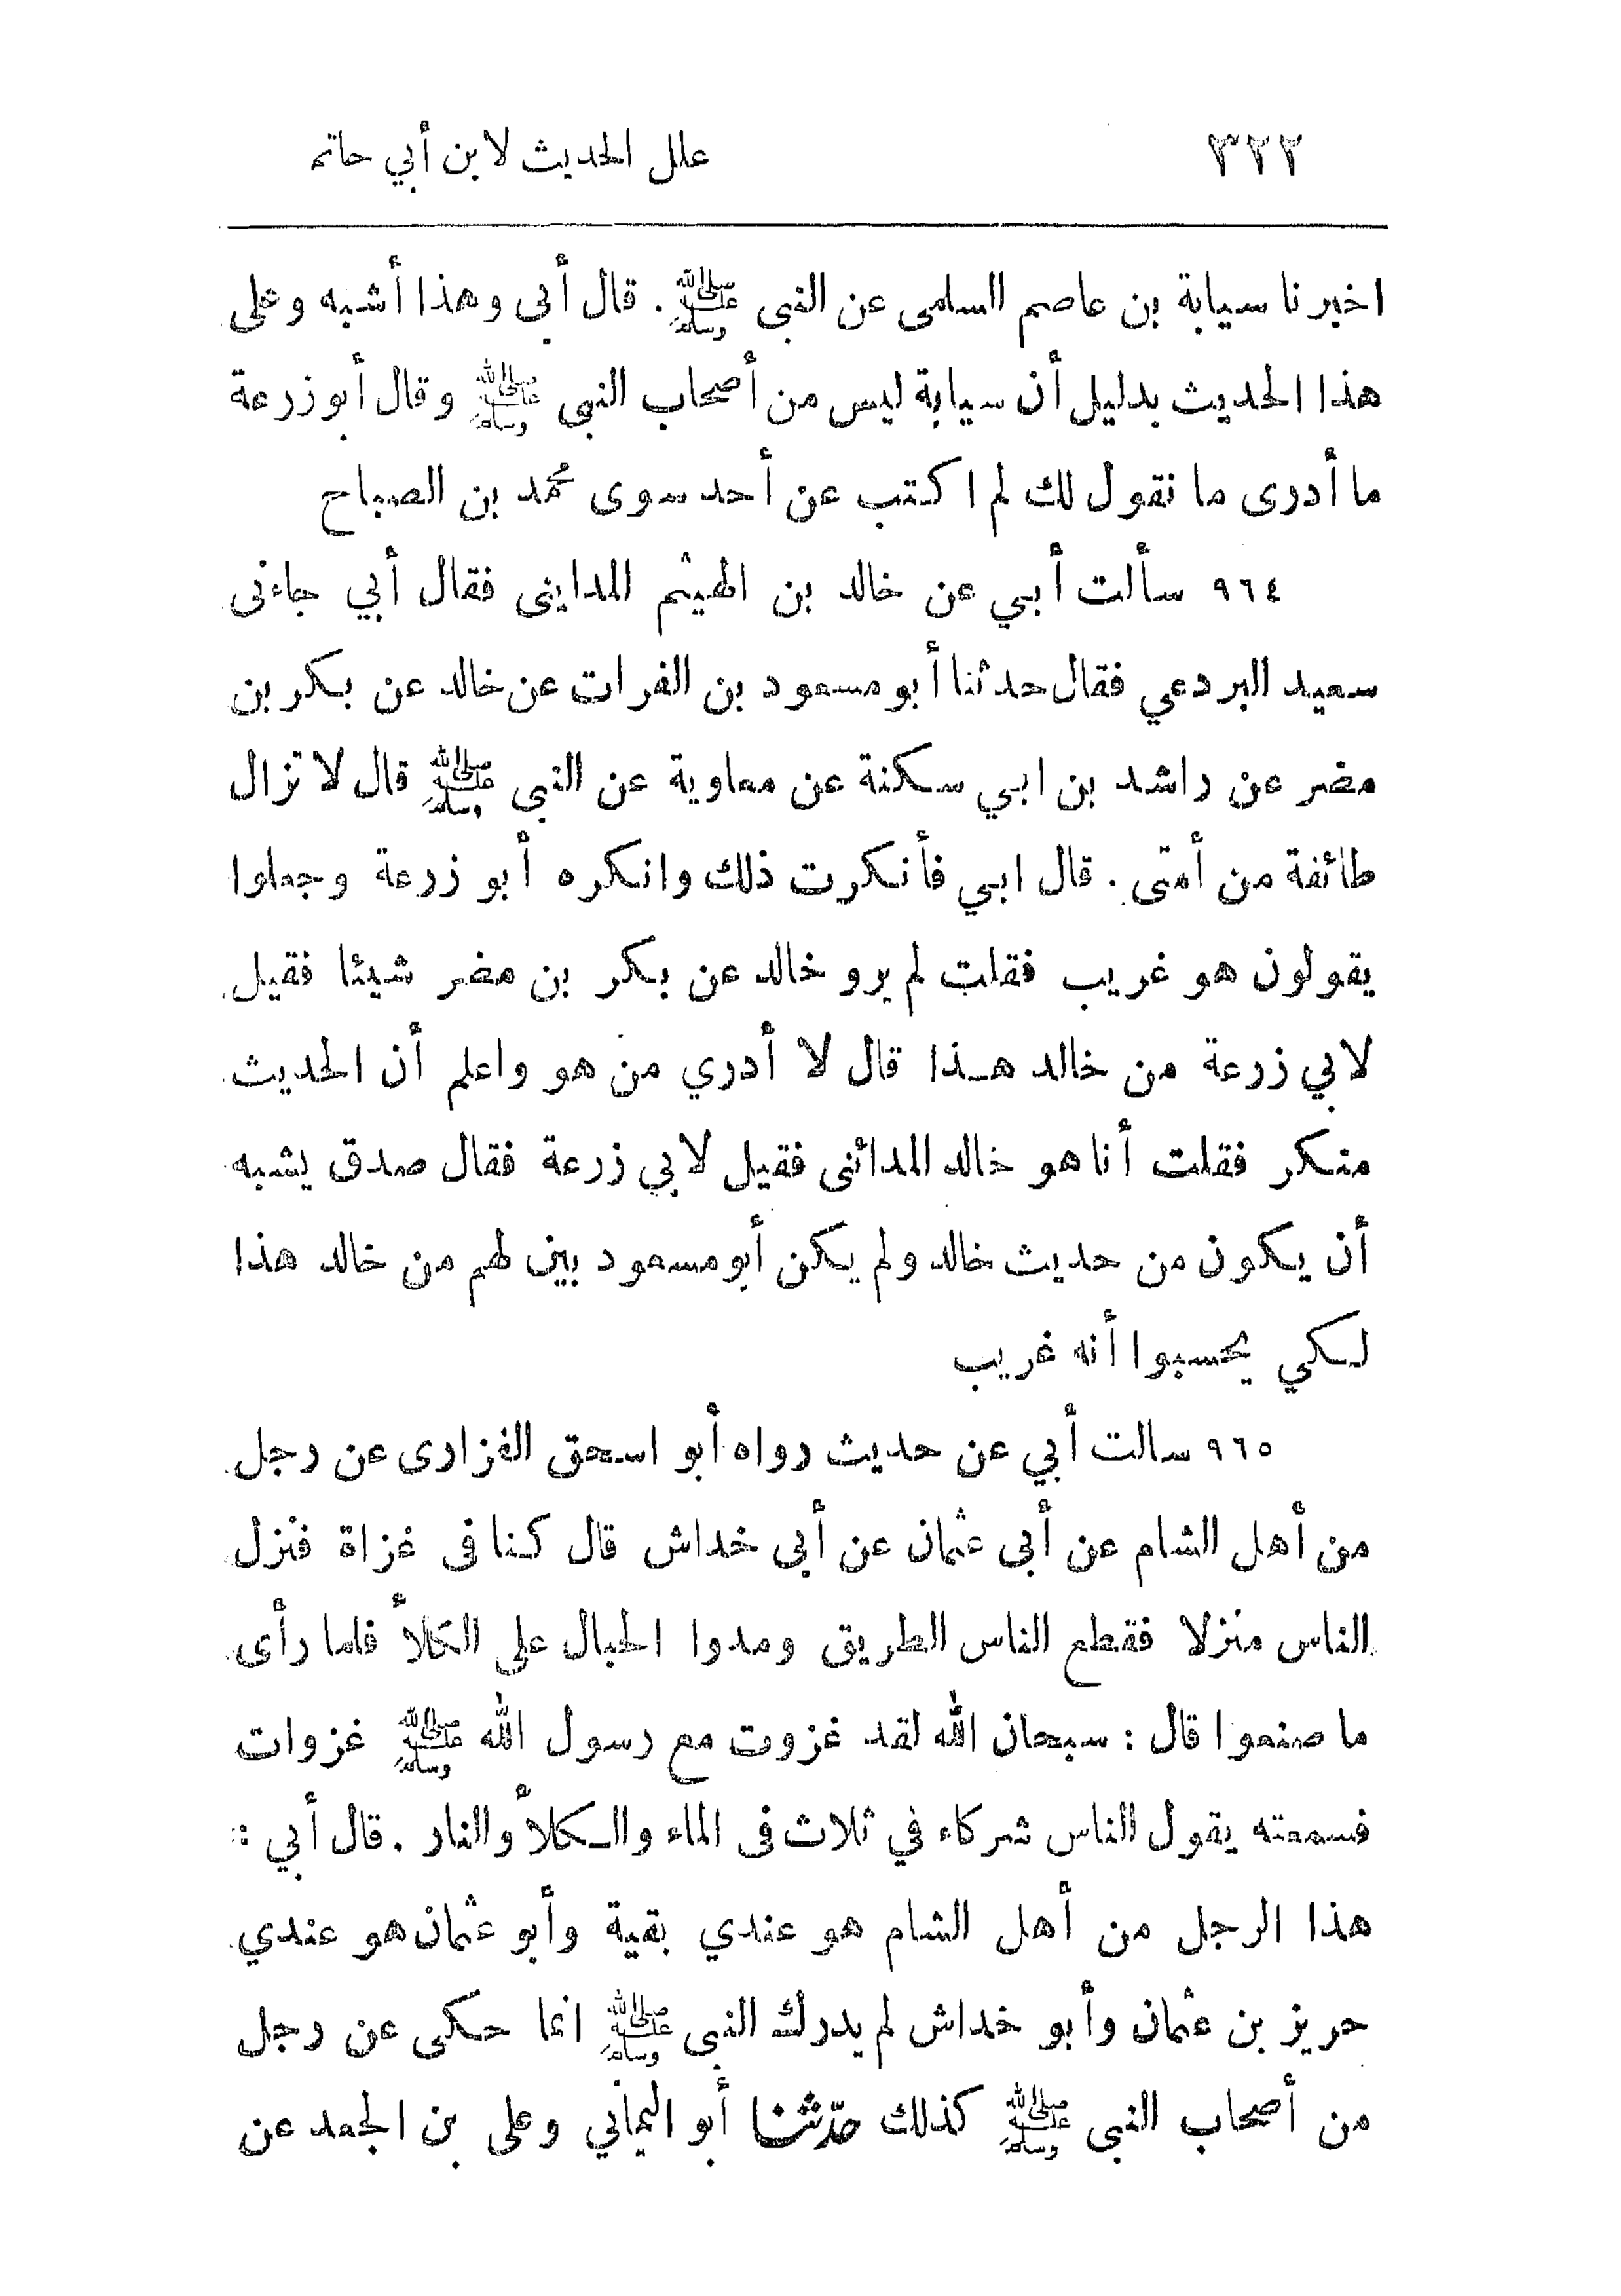 ٣٢٢ علل الحديث لابن أبي حاتم
اخبرنا سيابة بن عاصم السلمى عن النبى ﷺ. قال أبى وهذا أشبه وعلى
هذا الحديث بدليل أن سيابة ليس من أصحاب النبى ﷺ وقال أبو زرعة
ما أدرى ما نقول لك لم اكتب عن أحد سوى محمد بن الصباح
٩٦٤ سألت أبي عن خالد بن الهيثم المداينى فقال أبي جاءنى
سعيد البردعي فقال حدثنا أبو مسعود بن الفرات عن خالد عن بكر بن
مضر عن راشد بن ابي سكنة عن معاوية عن النبى ﷺ قال لا تزال
طائفة من أمتى. قال ابي فأنكرت ذلك وانكره أبو زرعة وجعلوا
يقولون هو غريب فقلت لم يرو خالد عن بكر بن مضر شيئا فقيل
لابي زرعة من خالد هذا قال لا أدري من هو واعلم أن الحديث
منكر فقلت أنا هو خالد المدائنى فقيل لابي زرعة فقال صدق يشبه
أن يكون من حديث خالد ولم يكن أبو مسعود بين لهم من خالد هذا
لكي يحسبوا أنه غريب
٩٦٥ سالت أبي عن حديث رواه أبو اسحق الفزارى عن رجل
من أهل الشام عن أبى عثمان عن أبى خداش قال كنا فى غزاة فنزل
الناس منزلا فقطع الناس الطريق ومدوا الحبال على الكلأ فلما رأى
ما صنعوا قال : سبحان الله لقد غزوت مع رسول الله ﷺ غزوات
فسمعته يقول الناس شركاء في ثلاث فى الماء والكلأ والنار . قال أبي :
هذا الرجل من أهل الشام هو عندي بقية وأبو عثمان هو عندي
حريز بن عثمان وأبو خداش لم يدرك النبى ﷺ انما حكى عن رجل
من أصحاب النبى ﷺ كذلك حدّثنا أبو اليماني وعلى بن الجعد عن